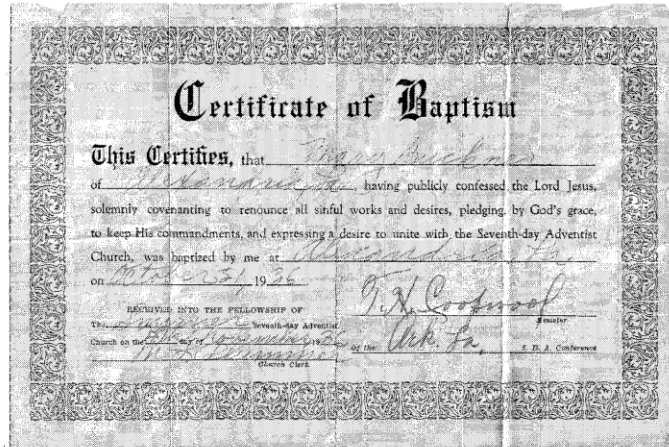 Certificate of Baptism
This Certifies, that Mary
of Alexandria La, having publicly confessed the Lord Jesus,
solemnly covenanting to renounce all sinful works and desires, pledging by God's grace,
to keep His commandments, and expressing a desire to unite with the Seventh-day Adventist
Church, was baptized by me at Alexandria La.
on October 31, 1936
T. H. Coopwood
Minister
RECEIVED INTO THE FELLOWSHIP OF
The Seventh-day Adventist
Church on the day of November 19
of the Ark. La, S. D. A. Conference
Church Clerk